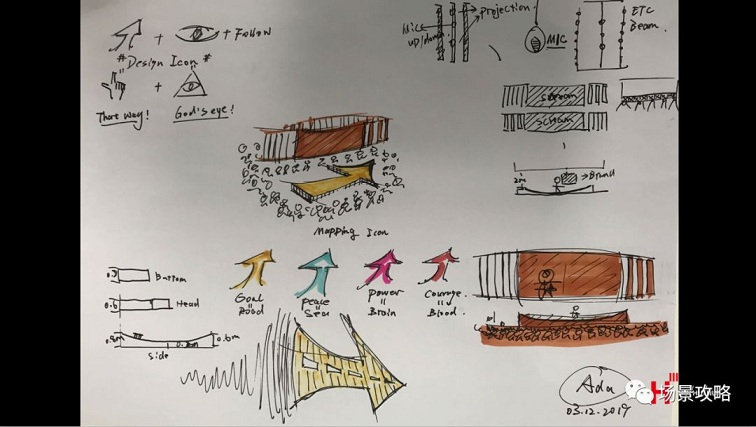 + + Follow
# Design Icon #
+
That way! God's eye!
Mice up/down
projection
MIC
ETC Beam.
screen
screen
2m
Brand
Mapping Icon
0.3 Bottom
0.6 Head
0.6m
Side
Goal = Road
Peace = Sea
Power = Brain
Courage = Blood.
Ada
03.12.2019
场景攻略